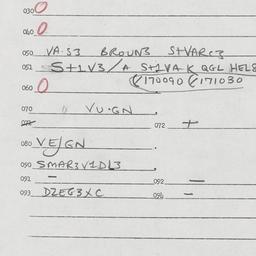 030 O
040 O
050 VA.S3 BROUN3 S+VARC3
051 S+1V3/A S+1VA K QGL HEL8
060 O (170090 (171030
070 VU.GN
072 +
080 VE/GN
090 SMAR3V1DL3
091 – 092 –
093 DZEG3XC 096 –